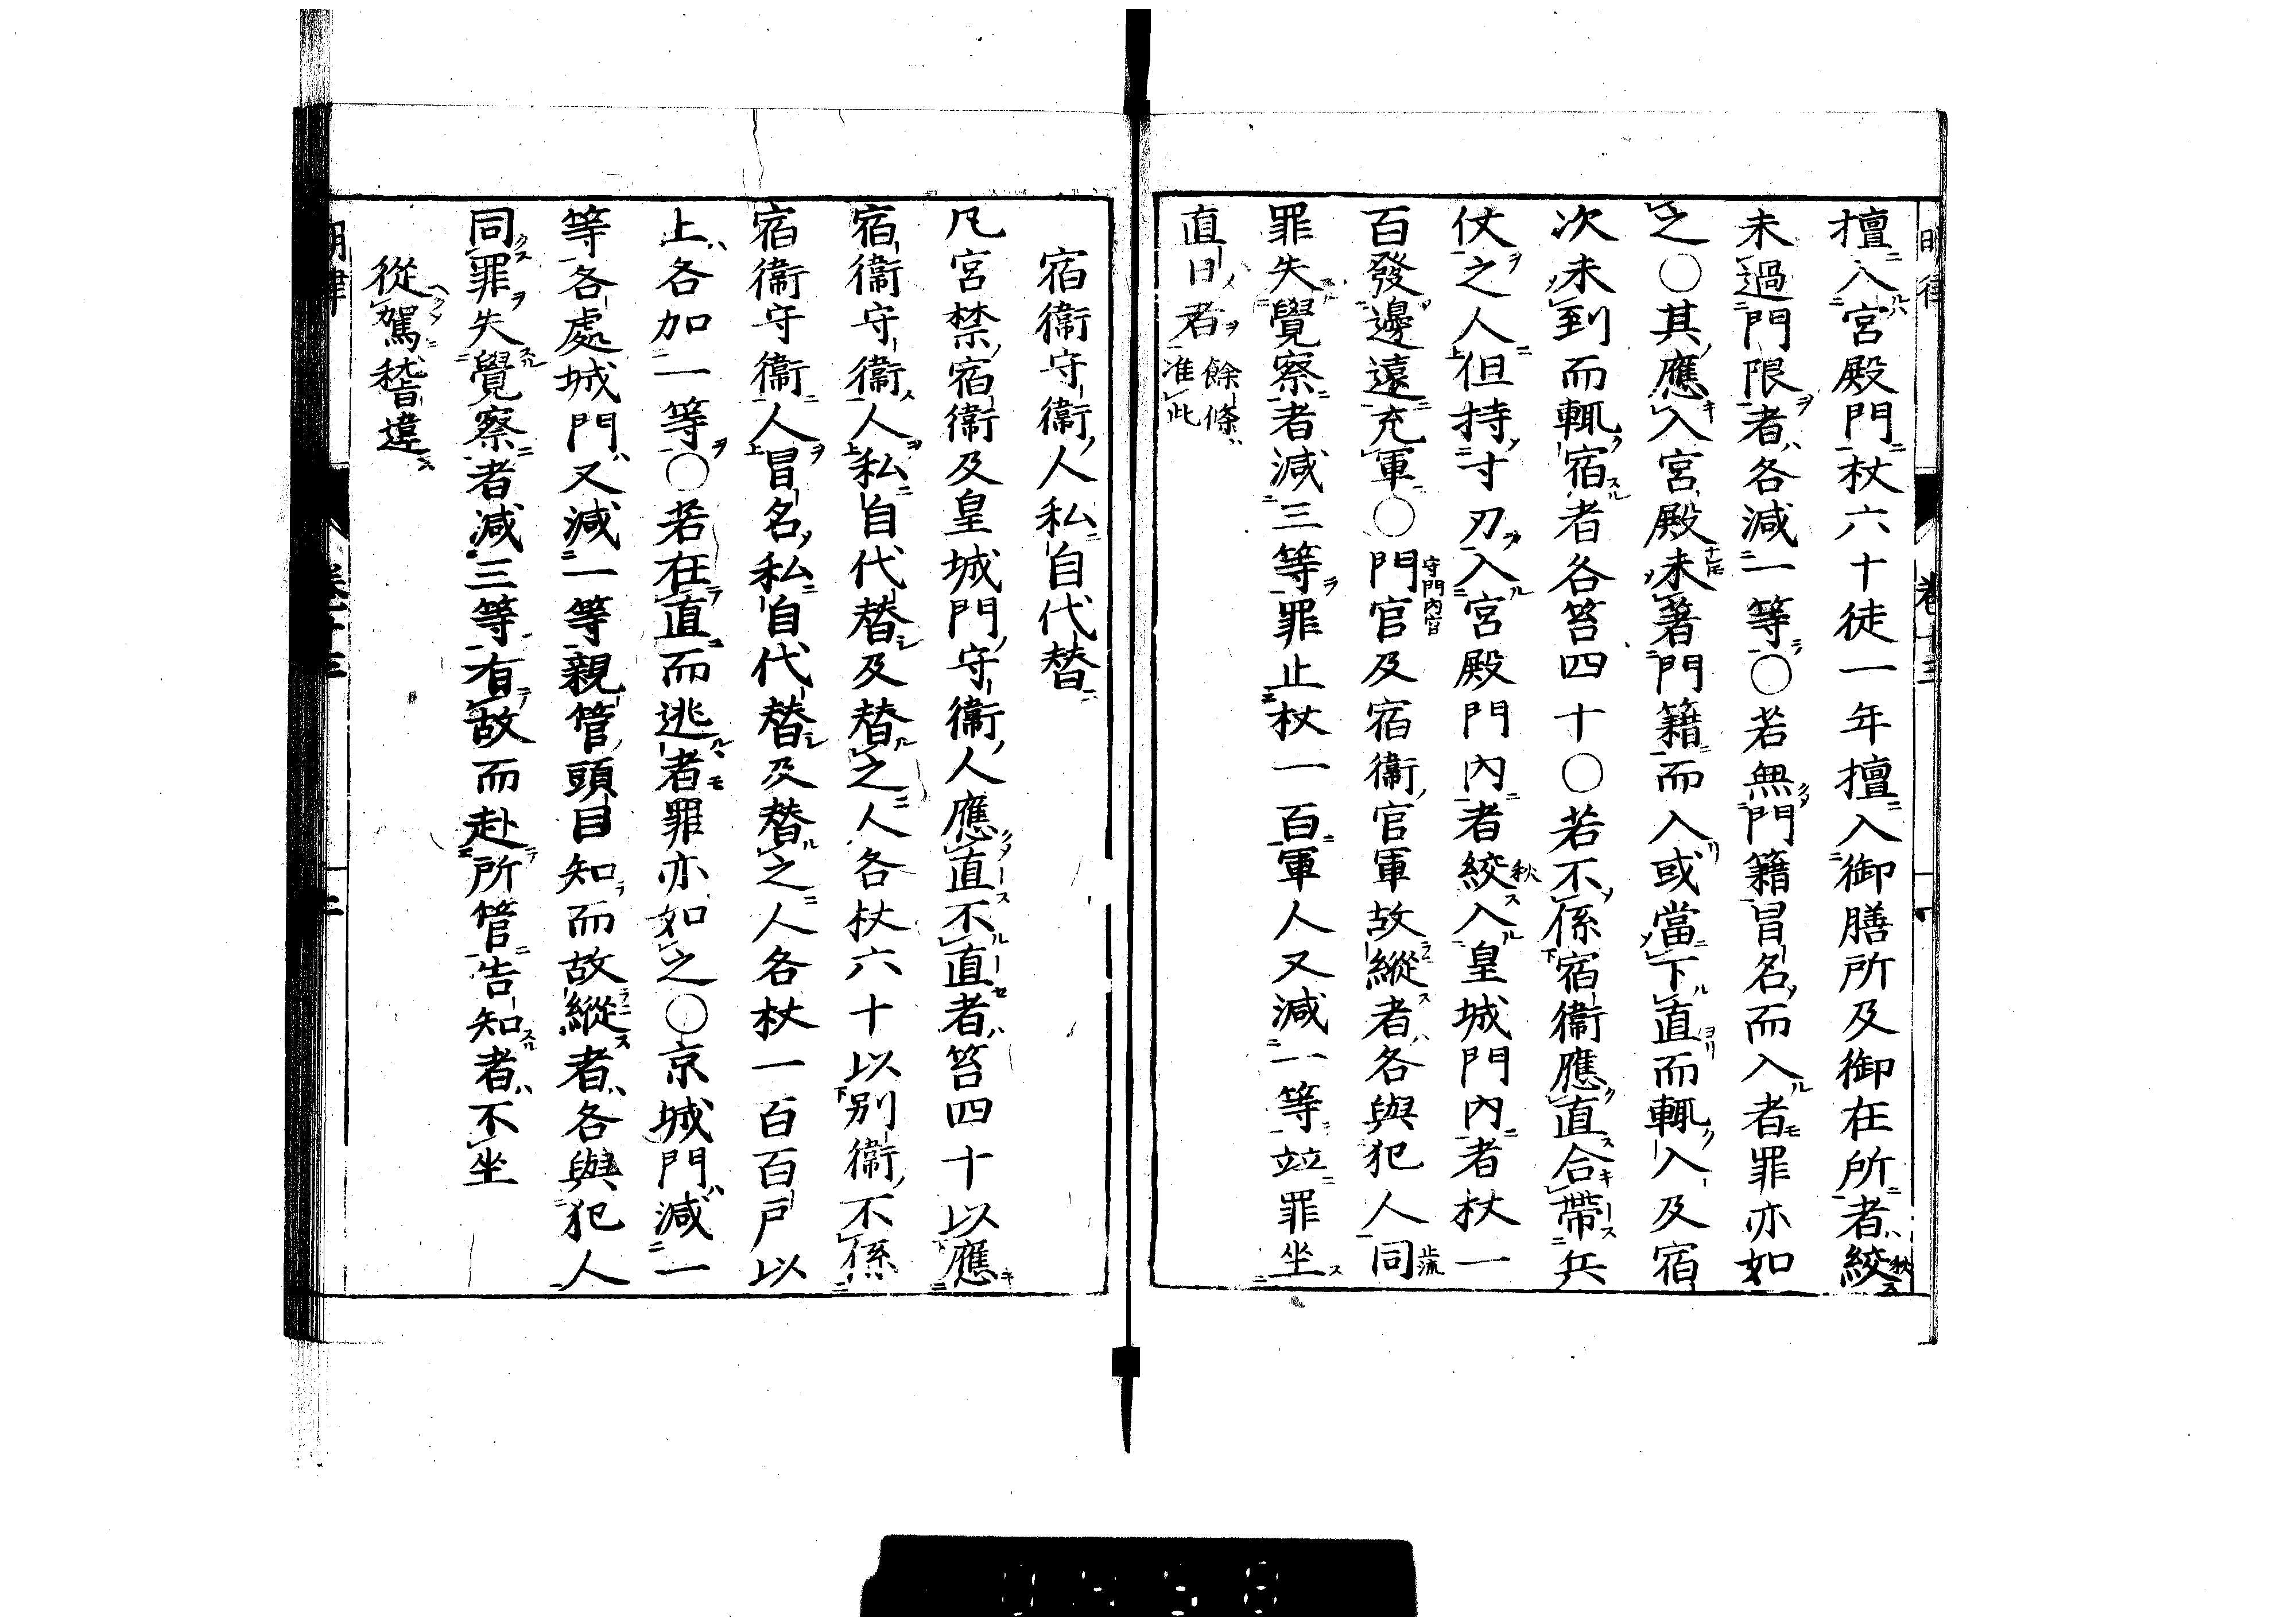 擅入宮殿門杖六十徒一年擅入御膳所及御在所者絞秋
未過門限者各減一等○若無門籍冒名而入者罪亦如
之○其應入宮殿未著門籍而入或當下直而輒入及宿
次未到而輒宿者各笞四十○若不係宿衞應直合帶兵
仗之人但持寸刃入宮殿門內者絞秋入皇城門內者杖一
百發邊遠充軍○門官守門內官及宿衞官軍故縱者各與犯人同止流
罪失覺察者減三等罪止杖一百軍人又減一等竝罪坐
直日者餘條准此
宿衞守衞人私自代替
凡宮禁宿衞及皇城門守衞人應直不直者笞四十以應
宿衞守衞人私自代替及替之人各杖六十以別衞不係
宿衞守衞人冒名私自代替及替之人各杖一百百戶以
上各加一等○若在直而逃者罪亦如之○京城門減一
等各處城門又減一等親管頭目知而故縱者各與犯人
同罪失覺察者減三等有故而赴所管告知者不坐
從駕稽違